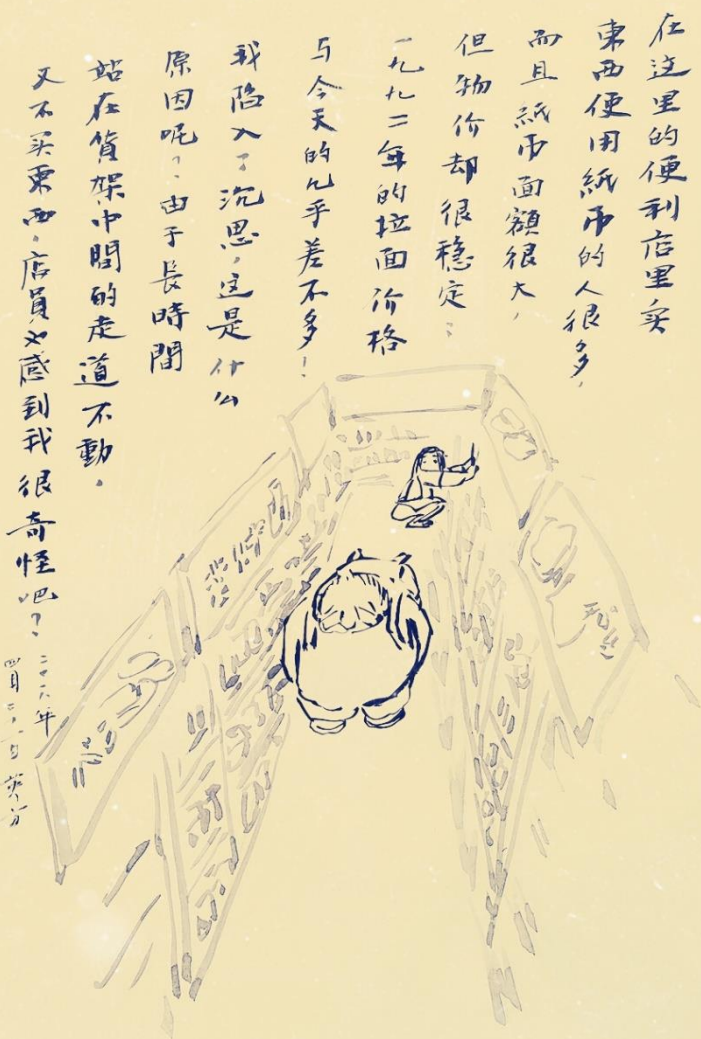 在这里的便利店里买
東西使用紙币的人很多,
而且紙币面額很大,
但物价却很穩定:
一九九二年的拉面价格
与今天的几乎差不多!
我陷入了沉思,这是什么
原因呢?由于長時間
站在貨架中間的走道不動。
又不买東西。店員必感到我很奇怪吧?
二十六年
四月二十六日